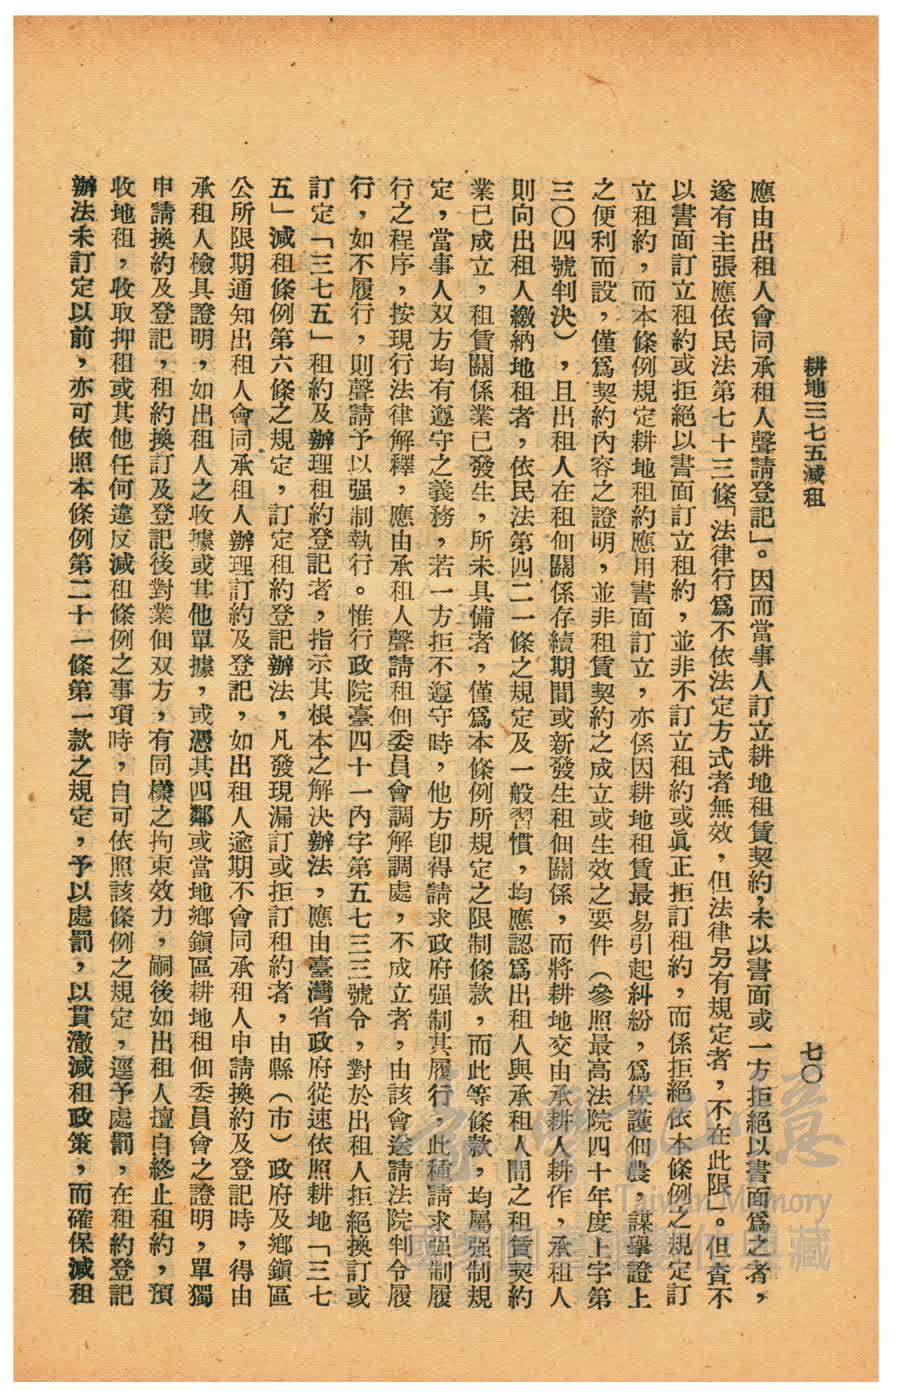 耕地三七五減租
七〇
應由出租人會同承租人聲請登記」。因而當事人訂立耕地租賃契約，未以書面或一方拒絕以書面爲之者，
遂有主張應依民法第七十三條「法律行爲不依法定方式者無效，但法律另有規定者，不在此限」。但查不
以書面訂立租約或拒絕以書面訂立租約，並非不訂立租約或眞正拒訂租約，而係拒絕依本條例之規定訂
立租約，而本條例規定耕地租約應用書面訂立，亦係因耕地租賃最易引起糾紛，爲保護佃農，謀舉證上
之便利而設，僅爲契約內容之證明，並非租賃契約之成立或生效之要件（參照最高法院四十年度上字第
三〇四號判決），且出租人在租佃關係存續期間或新發生租佃關係，而將耕地交由承耕人耕作，承租人
則向出租人繳納地租者，依民法第四二一條之規定及一般習慣，均應認爲出租人與承租人間之租賃契約
業已成立，租賃關係業已發生，所未具備者，僅爲本條例所規定之限制條款，而此等條款，均屬强制規
定，當事人双方均有遵守之義務，若一方拒不遵守時，他方卽得請求政府强制其履行，此種請求强制履
行之程序，按現行法律解釋，應由承租人聲請租佃委員會調解調處，不成立者，由該會送請法院判令履
行，如不履行，則聲請予以强制執行。惟行政院臺四十一內字第五七三三號令，對於出租人拒絕換訂或
訂定「三七五」租約及辦理租約登記者，指示其根本之解決辦法，應由臺灣省政府從速依照耕地「三七
五」減租條例第六條之規定，訂定租約登記辦法，凡發現漏訂或拒訂租約者，由縣（市）政府及鄉鎭區
公所限期通知出租人會同承租人辦理訂約及登記，如出租人逾期不會同承租人申請換約及登記時，得由
承租人檢具證明，如出租人之收據或其他單據，或憑其四鄰或當地鄉鎭區耕地租佃委員會之證明，單獨
申請換約及登記，租約換訂及登記後對業佃双方，有同樣之拘束效力，嗣後如出租人擅自終止租約，預
收地租，收取押租或其他任何違反減租條例之事項時，自可依照該條例之規定，逕予處罰，在租約登記
辦法未訂定以前，亦可依照本條例第二十一條第一款之規定，予以處罰，以貫澈減租政策，而確保減租
臺灣記憶
Taiwan Memory
國家圖書館數位典藏